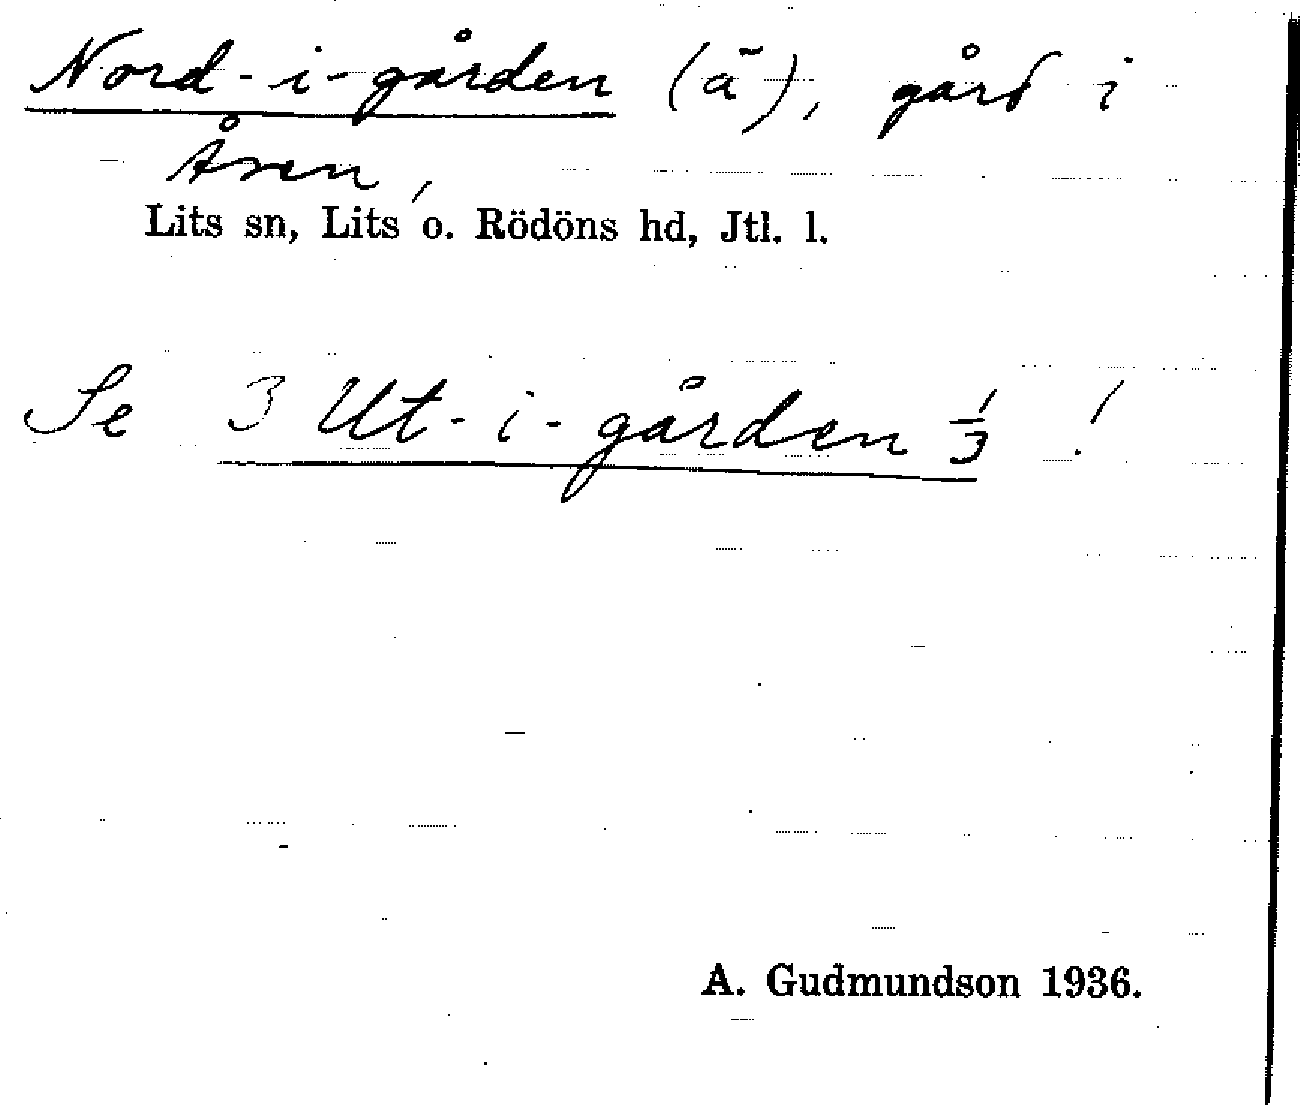 Nord-i-gården (ä), gård i
Åsen,
Lits sn, Lits o. Rödöns hd, Jtl. l.
Se 3 Ut-i-gården 1/3 !
A. Gudmundson 1936.